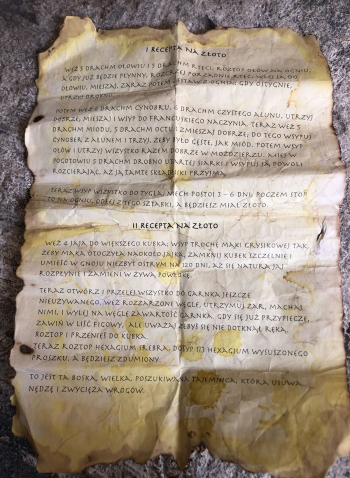 I RECEPTA NA ZŁOTO
WEŹ 5 DRACHM OŁOWIU I 5 DRACHM RTĘCI, ROZTOP OŁÓW NA OGNIU,
A GDY JUŻ BĘDZIE PŁYNNY, ROZGRZEJ PORZĄDNIE RTĘĆ, WLEJ JĄ DO
OŁOWIU, MIESZAJ, ZARAZ POTEM ZESTAW Z OGNIA, GDY OSTYGNIE,
UTRZYJ DROBNO.
POTEM WEŹ 6 DRACHM CYNOBRU, 6 DRACHM CZYSTEGO AŁUNU, UTRZYJ
DOBRZE, MIESZAJ I WSYP DO FRANCUSKIEGO NACZYNIA. TERAZ WEŹ 5
DRACHM MIODU, 5 DRACHM OCTU, ZMIESZAJ DOBRZE; DO TEGO WSYPUJ
CYNOBER Z AŁUNEM I TRZYJ, ŻEBY BYŁO GĘSTE, JAK MIÓD. POTEM WSYP
OŁÓW I UTRZYJ WSZYSTKO RAZEM DOBRZE W MOŹDZIERZU. MIEJ W
POGOTOWIU 5 DRACHM DROBNO UTARTEJ SIARKI I WSYPUJ JĄ POWOLI
ROZCIERAJĄC, AŻ JĄ TAMTE SKŁADNIKI PRZYJMĄ.
TERAZ WSYP WSZYSTKO DO TYGLA, NIECH POSTOI 3 - 6 DNI, POCZEM STOP
TO NA OGNIU, ODLEJ Z TEGO SZTABKI, A BĘDZIESZ MIAŁ ZŁOTO.
II RECEPTA NA ZŁOTO
WEŹ 4 JAJA DO WIĘKSZEGO KUBKA; WSYP TROCHĘ MĄKI GRYSIKOWEJ TAK,
ŻEBY MĄKA OTOCZYŁA NAOKOŁO JAJKA, ZAMKNIJ KUBEK SZCZELNIE I
UMIEŚĆ W GNOJU NIEZBYT OSTRYM NA 120 DNI, AŻ SIĘ NATURA JAJ
ROZPŁYNIE I ZAMIENI W ŻYWĄ POWŁOKĘ.
TERAZ OTWÓRZ I PRZELEJ WSZYSTKO DO GARNKA JESZCZE
NIEUŻYWANEGO, WEŹ ROZŻARZONE WĘGLE, UTRZYMUJ ŻAR, MACHAJ
NIMI, I WYLEJ NA WĘGLE ZAWARTOŚĆ GARNKA. GDY SIĘ JUŻ PRZYPIECZE,
ZAWIŃ W LIŚĆ FIGOWY, ALE UWAŻAJ ŻEBYŚ SIĘ NIE DOTKNĄŁ RĘKĄ.
ROZTOP I PRZENIEŚ DO KUBKA.
TERAZ ROZTOP HEXAGIUM SREBRA, DOSYP 1/3 HEXAGIUM WYSUSZONEGO
PROSZKU, A BĘDZIESZ ZDUMIONY.
TO JEST TA BOSKA, WIELKA, POSZUKIWANA TAJEMNICA, KTÓRA USUWA
NĘDZĘ I ZWYCIĘŻA WROGÓW.